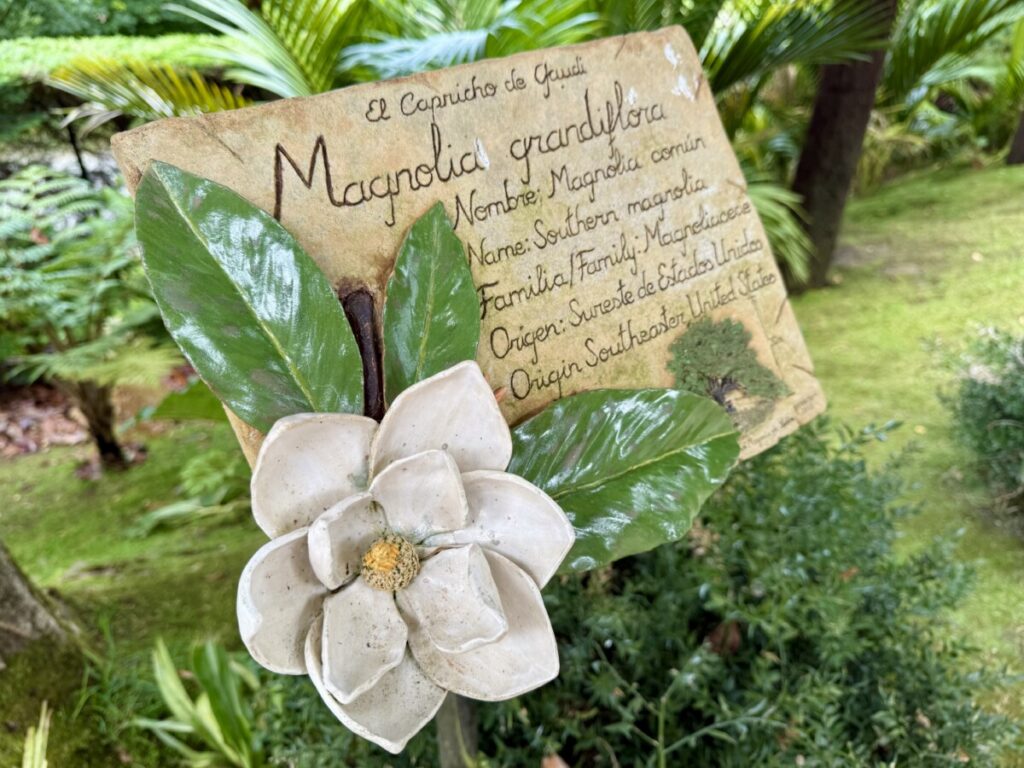 El Capricho de Gaudi
Magnolia grandiflora
Nombre: Magnolia común
Name: Southern magnolia
Familia/Family: Magnoliaceae
Origen: Sureste de Estados Unidos
Origin Southeaster United States